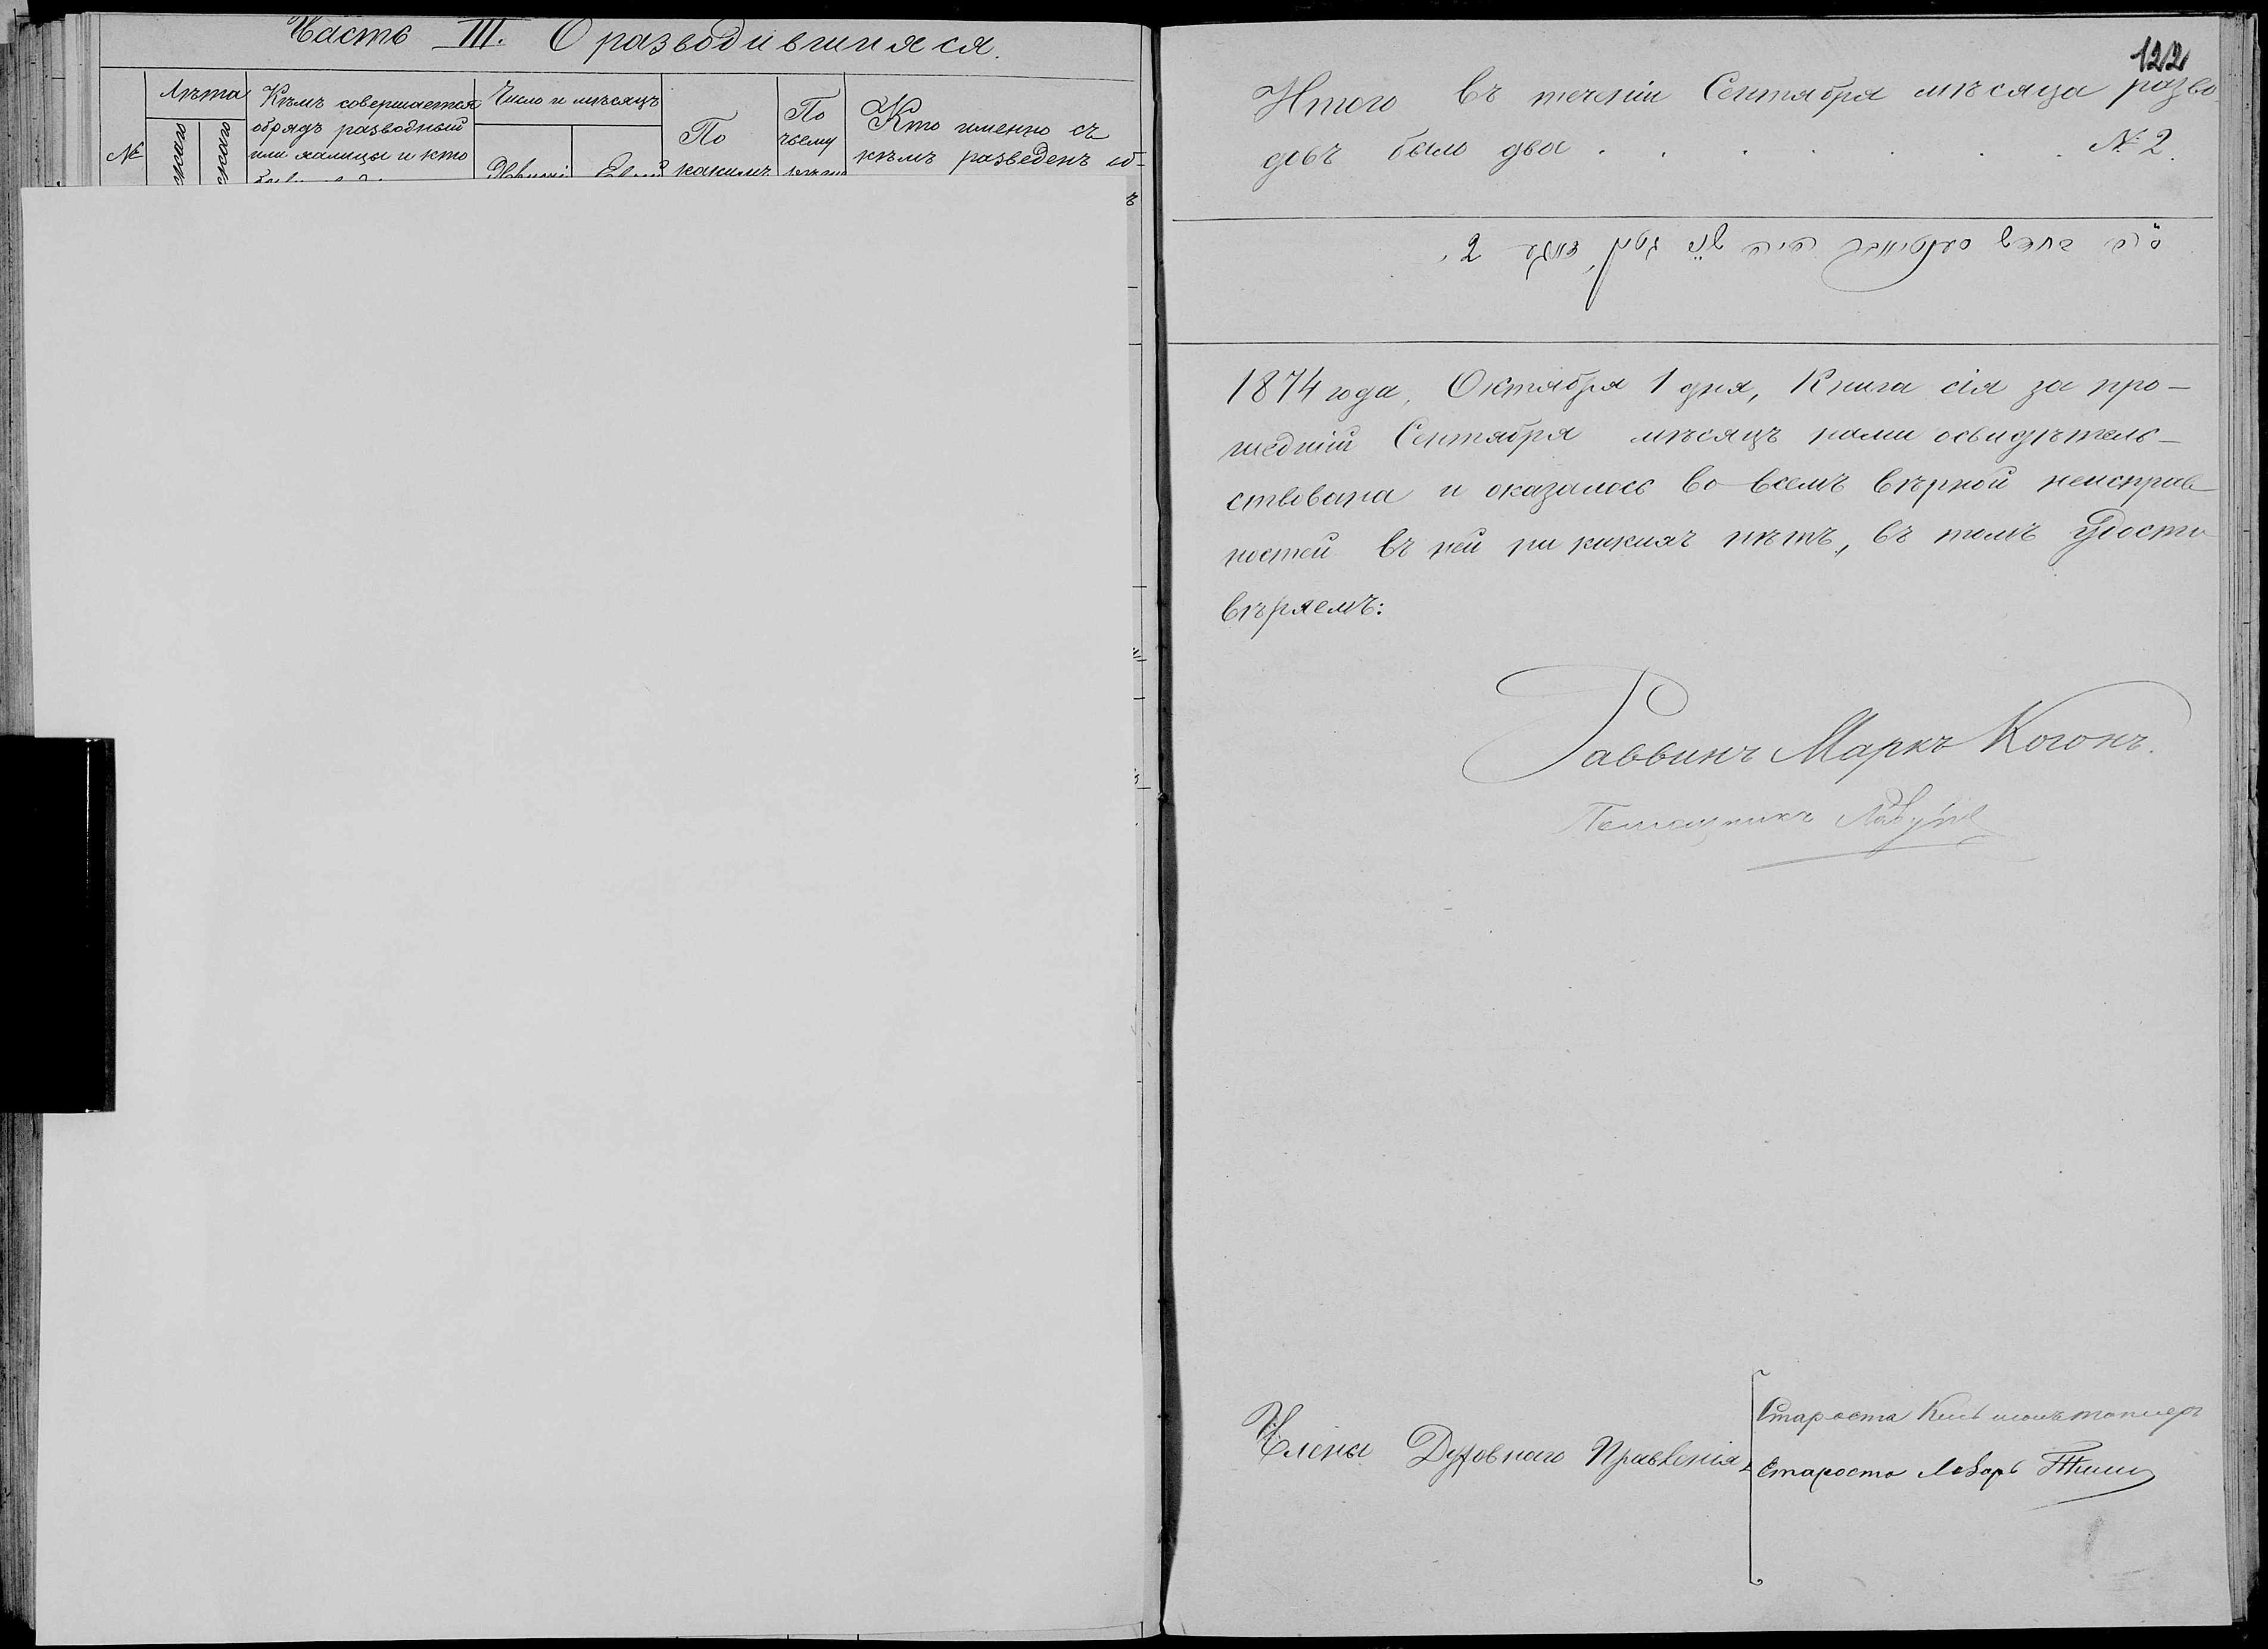 Часть III. О разводившихся.
№
Лѣта
Кѣмъ совершается
обрядъ разводный
или халицы и кто
Число и мѣсяцъ
По
какимъ
По
чьему
Кто именно съ
кѣмъ разведенъ об-
122
Итого въ теченіи Сентября мѣсяца разво
довъ было два . . . . . . . № 2.
1874 года, Октября 1 дня, Книга сія за про-
шедшій Сентября мѣсяцъ нами освидѣтель-
ствована и оказалось во всемъ вѣрной неисправ
ностей въ ней ни какихъ нѣтъ, въ томъ удосто
вѣряемъ:
Раввинъ Маркъ Когонъ.
Помощникъ
Члены Духовнаго Правленія
Староста
Староста Лазарь